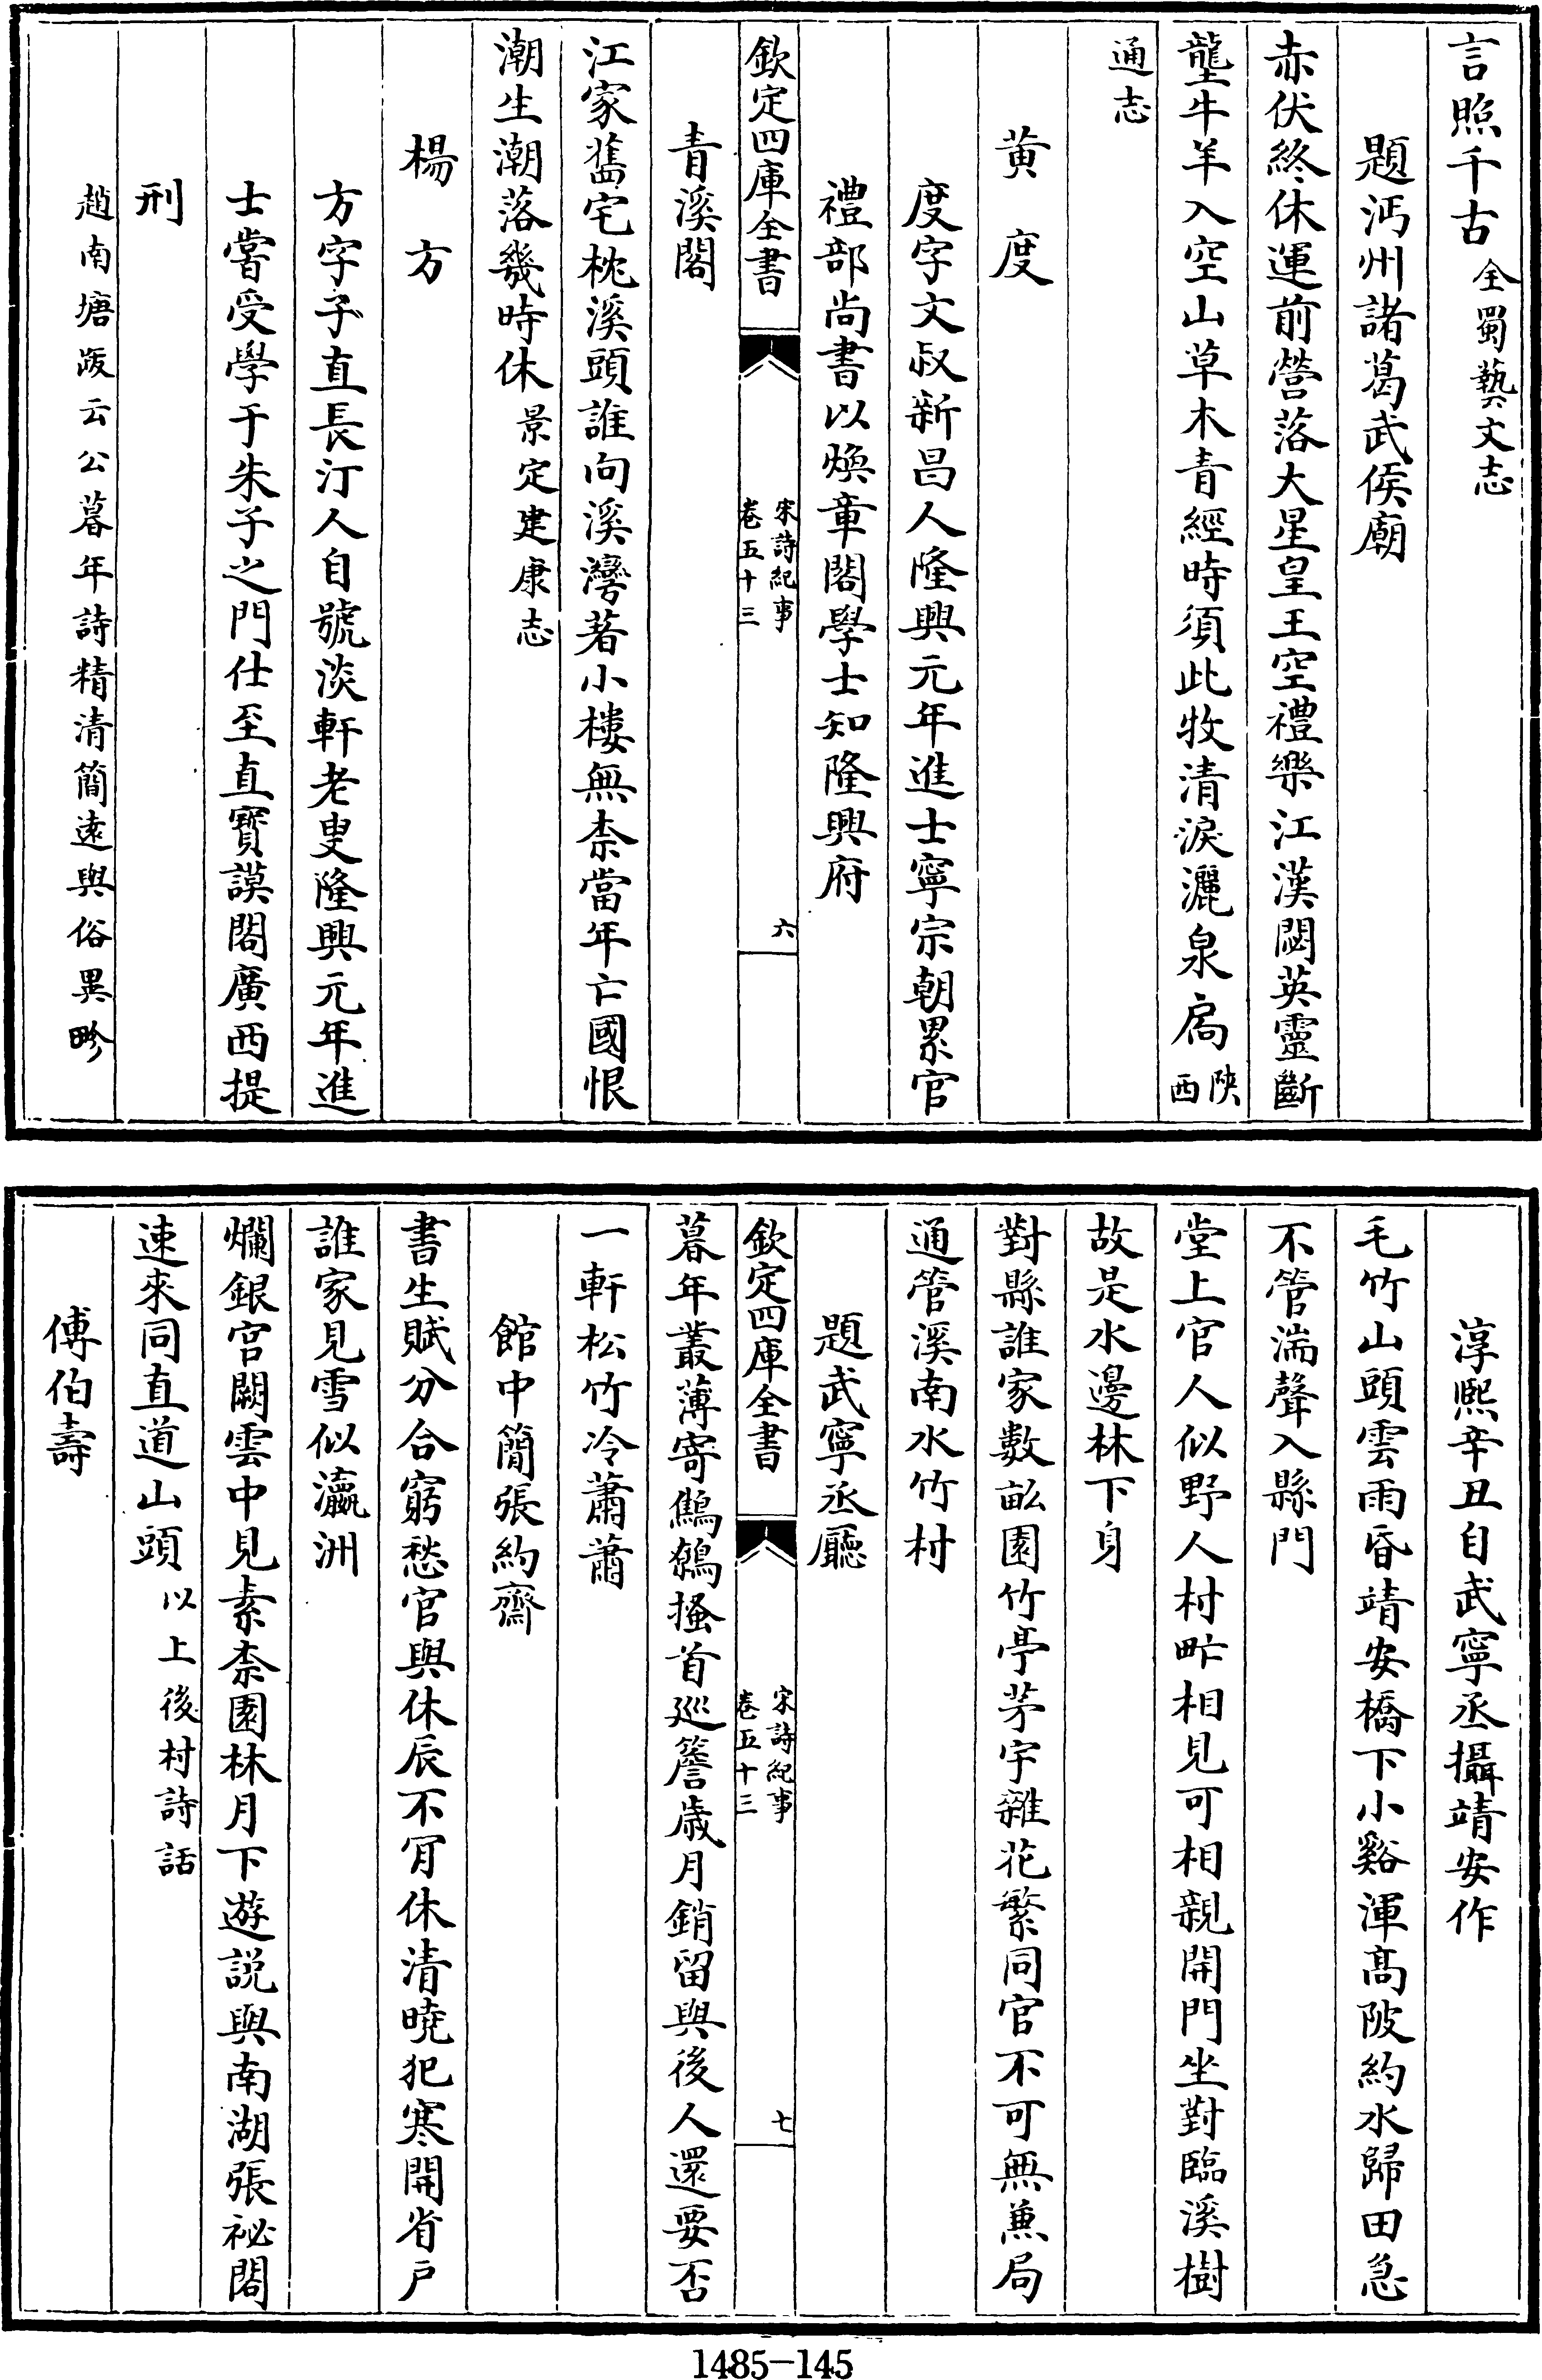 言照千古全蜀藝文志
題沔州諸葛武侯廟
赤伏終休運前營落大星皇王空禮樂江漢閟英靈斷
壟牛羊入空山草木青經時須此牧清淚灑泉扃陜西
通志
黄度
度字文叔新昌人隆興元年進士寧宗朝累官
禮部尚書以煥章閣學士知隆興府
欽定四庫全書 宋詩紀事卷五十三 六
青溪閣
江家舊宅枕溪頭誰向溪灣著小樓無柰當年亡國恨
潮生潮落幾時休景定建康志
楊方
方字子直長汀人自號淡軒老叟隆興元年進
士嘗受學于朱子之門仕至直寳謨閣廣西提
刑
趙南塘跋云公暮年詩精清簡遠與俗異畛
淳熙辛丑自武寧丞攝靖安作
毛竹山頭雲雨昏靖安橋下小谿渾髙陂約水歸田急
不管湍聲入縣門
堂上官人似野人村甿相見可相親開門坐對臨溪樹
故是水邊林下身
對縣誰家數畝園竹亭茅宇雜花繁同官不可無兼局
通管溪南水竹村
題武寧丞廳
欽定四庫全書 宋詩紀事卷五十三 七
暮年叢薄寄鷦鷯搔首巡簷歳月銷留與後人還要否
一軒松竹冷蕭蕭
館中簡張約齋
書生賦分合窮愁官與休辰不肎休清曉犯寒開省户
誰家見雪似瀛洲
爛銀宫闕雲中見素柰園林月下遊説與南湖張祕閣
速來同直道山頭以上後村詩話
傅伯壽
1485-145